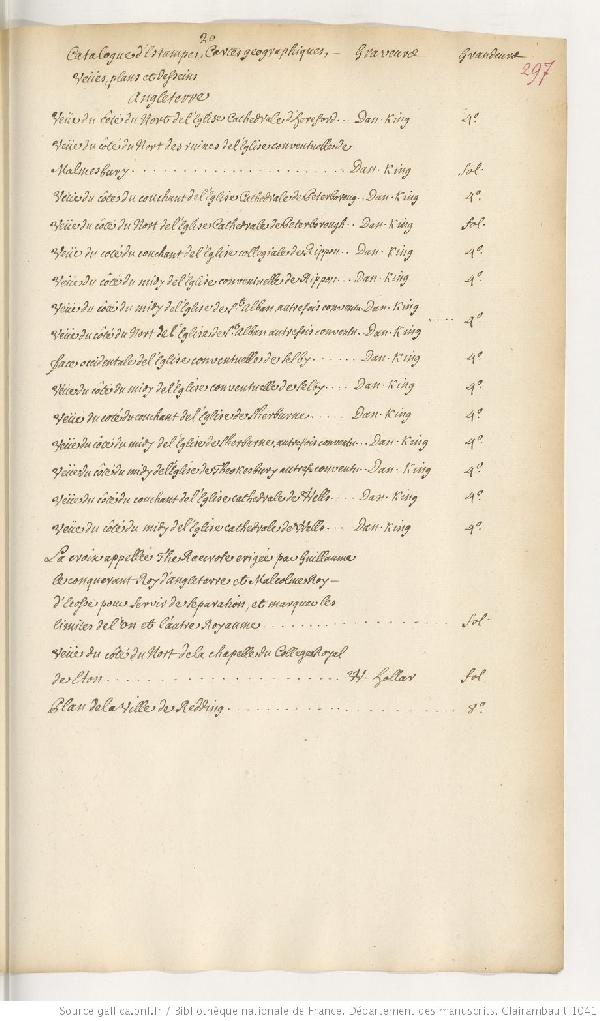 2º
Catalogue d'Estampes, Cartes geographiques, — Graveure Grandeure
297
Veües, plans et desseins
Angleterre
Veüe du côté du Nort de l'Eglise Cathedrale d'Hereford .. Dan. King 4º.
Veüe du côté du Nort des ruines de l'Eglise conventuelle de
Malmesbury .................. Dan. King fol.
Veüe du côté du couchant de l'Eglise Cathedrale de Peterboroug .. Dan. King 4º.
Veüe du côté du Nort de l'Eglise Cathedrale de Peterborough .. Dan. King fol.
Veüe du côté du couchant de l'Eglise collegiale de Rippon .. Dan. King 4º.
Veüe du côté du midy de l'Eglise conventuelle de Rippon ... Dan. King 4º.
Veüe du côté du midy de l'Eglise de St. Alban autrefois conventu. Dan. King
Veüe du côté du Nort de l'Eglise de St. Alban autrefois conventu. Dan. King .... 4º.
face occidentale de l'Eglise conventuelle de Selby ...... Dan. King 4º.
Veüe du côté du midy de l'Eglise conventuelle de Selby ... Dan. King 4º.
Veüe du coté du couchant de l'Eglise de Sherburne ..... Dan. King 4º.
Veüe du côté du midy de l'Eglise de Sherburne, autrefois conventu .. Dan. King 4º.
Veüe du côté du midy de l'Eglise de Theokesbury autref. conventu .. Dan. King 4º.
Veüe du côté du couchant de l'Eglise cathedrale de Wells .... Dan. King 4º.
Veüe du côté du midy de l'Eglise cathedrale de Wells .... Dan. King 4º.
La croix appellée The Roecrosse erigée par Guillaume
le conquerant Roy d'angleterre et Malcolme Roy —
d'Ecosse pour servir de separation, et marquer les
limites de l'un et l'autre Royaume ............... fol.
Veüe du côté du Nort de la chapelle du College Royal
de Eton ..................... W. Hollar fol
Plan de la Ville de Redding ................. 8º.
Source gallica.bnf.fr / Bibliothèque nationale de France. Département des manuscrits. Clairambault 1041